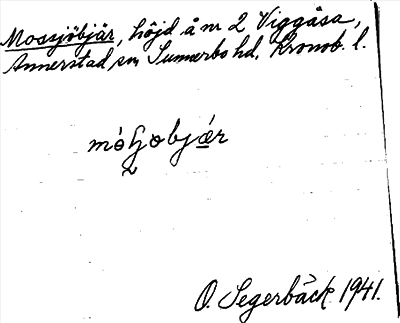 Mossjöbjär, höjd å nr 2 Viggåsa,
Annerstad sn Sunnerbo hd. Kronob. l.
O. Segerbäck 1941.